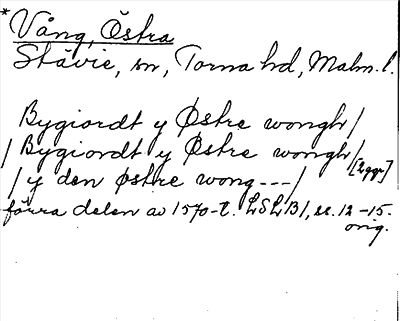 *Vång, Östra
Stävie, sn, Torna hd, Malm. l.
Bygiordt y Østre wongh/
/Bygiordt y Østre wongh/[2ggr]
/y den østre wong---/
förra delen av 1570-t. LSLB1, s. 12-15.
orig.